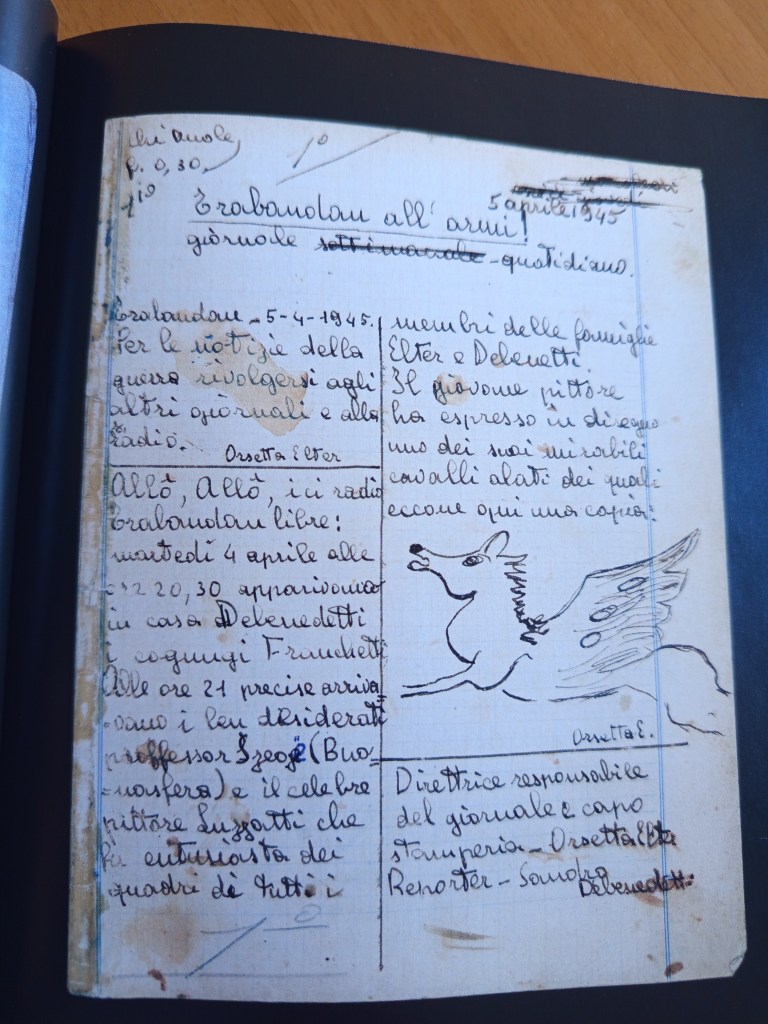 1º
f. 0,30.
5 aprile 1945
Trabandan all'armi!
giornale settimanale - quotidiano.
Trabandan - 5-4-1945.
Per le notizie della
guerra rivolgersi agli
altri giornali e alla
radio.
Orsetta Elter
Allô, Allô, ici radio
Trabandan libre:
martedì 4 aprile alle
ore 20,30 apparivano
in casa Debenedetti
i cogungi Franchetti
Alle ore 21 precise arriva=
=vano i ben desiderati
proffessor Szegö (Buo=
=nosfera) e il celebre
pittore Luzzatti che
fu entusiasta dei
quadri di tutti i
membri delle famiglie
Elter e Debenetti.
Il giovane pittore
ha espresso in disegno
uno dei suoi mirabili
cavalli alati dei quali
eccone qui una copia:
Orsetta E.
Direttrice responsabile
del giornale e capo
stamperia - Orsetta Elter
Reporter - Sandro
Debenedetti